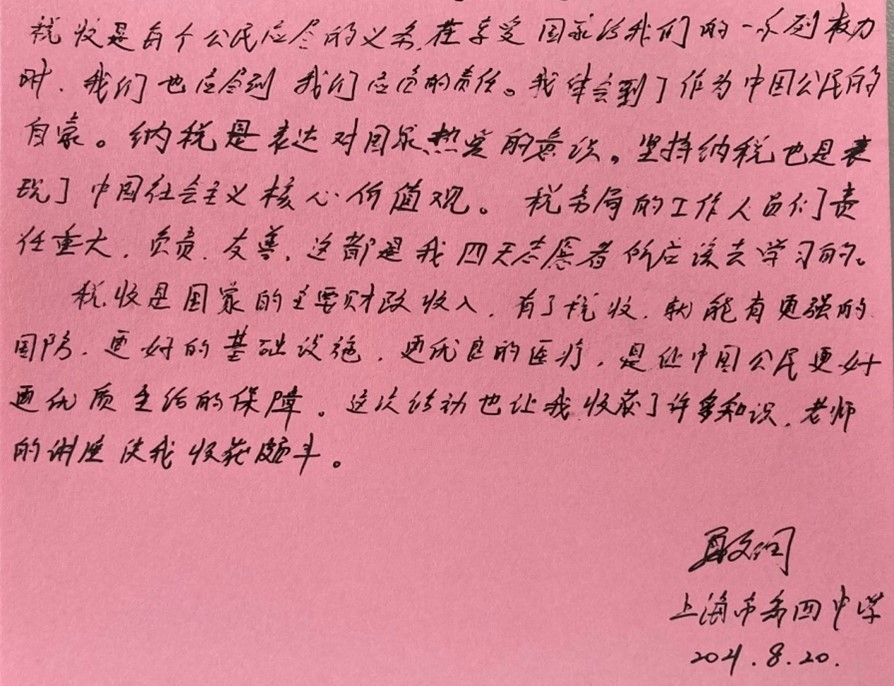 税收是每个公民应尽的义务,在享受国家给我们的一系列权力
时,我们也应尽到我们应负的责任。我体会到了作为中国公民的
自豪。纳税是表达对国家热爱的意识。坚持纳税也是表
现了中国社会主义核心价值观。税务局的工作人员们责
任重大,负责,友善,这都是我四天志愿者所应该去学习的。
税收是国家的主要财政收入,有了税收,就能有更强的
国防,更好的基础设施,更优良的医疗,是让中国公民更好
更优质生活的保障。这次活动也让我收获了许多知识,老师
的讲座使我收获颇丰。
上海市第四中学
2021.8.20.